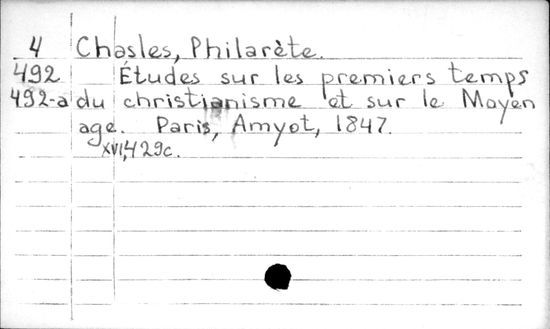 4 Chasles, Philarète.
492 Études sur les premiers temps
492-a du christianisme et sur le Moyen
age. Paris, Amyot, 1847.
XVI,429c.